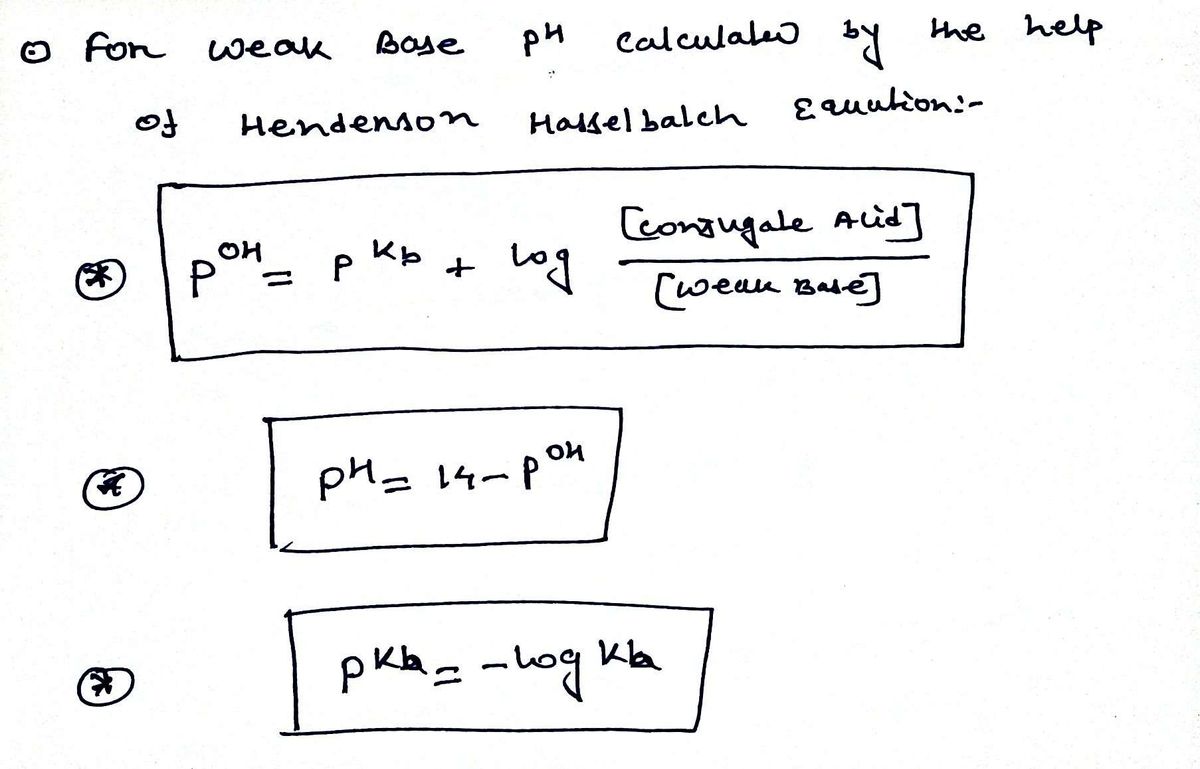 ⊙ For weak Base pH calculated by the help
of Henderson Hasselbalch Equation:-
* pOH = pKb + log [Conjugate Acid] / [Weak Base]
* pH = 14 - pOH
* pKb = - log Kb